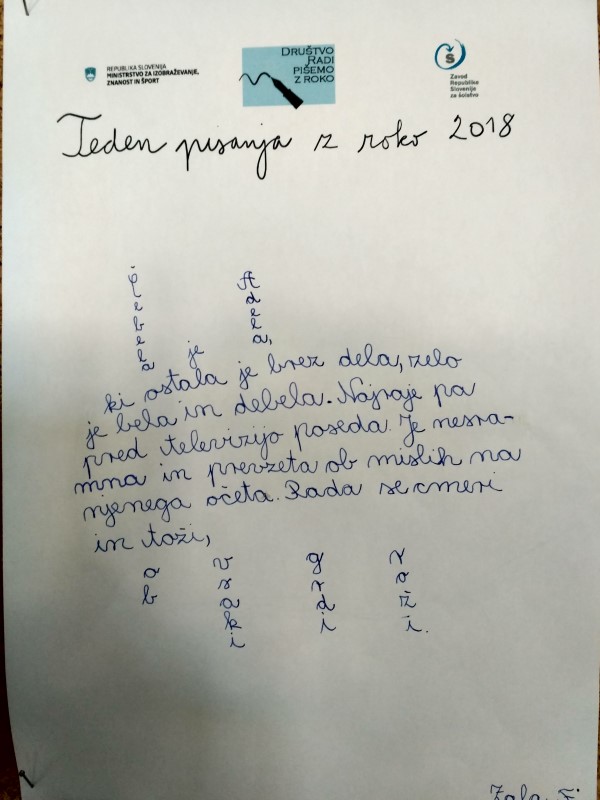 REPUBLIKA SLOVENIJA
MINISTRSTVO ZA IZOBRAŽEVANJE,
ZNANOST IN ŠPORT
DRUŠTVO
RADI
PIŠEMO
Z ROKO
Š
Zavod
Republike
Slovenije
za šolstvo
Teden pisanja z roko 2018
Čebela je Adela,
ki ostala je brez dela, zelo
je bela in debela. Najraje pa
pred televizijo poseda. Je nesra-
mna in prevzeta ob mislih na
njenega očeta. Rada se cmeri
in toži,
ob vsaki grdi roži.
Zala F.